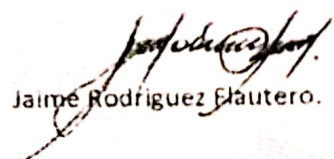 Jaime Rodriguez Elautero.